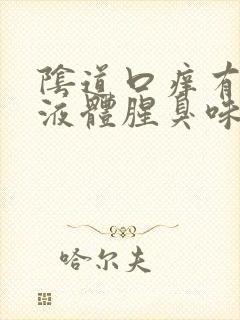 陰道口痒有
液體腥臭味
哈尔夫